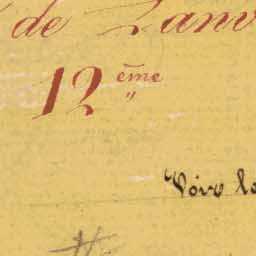 de Janv
12ème
Voir le